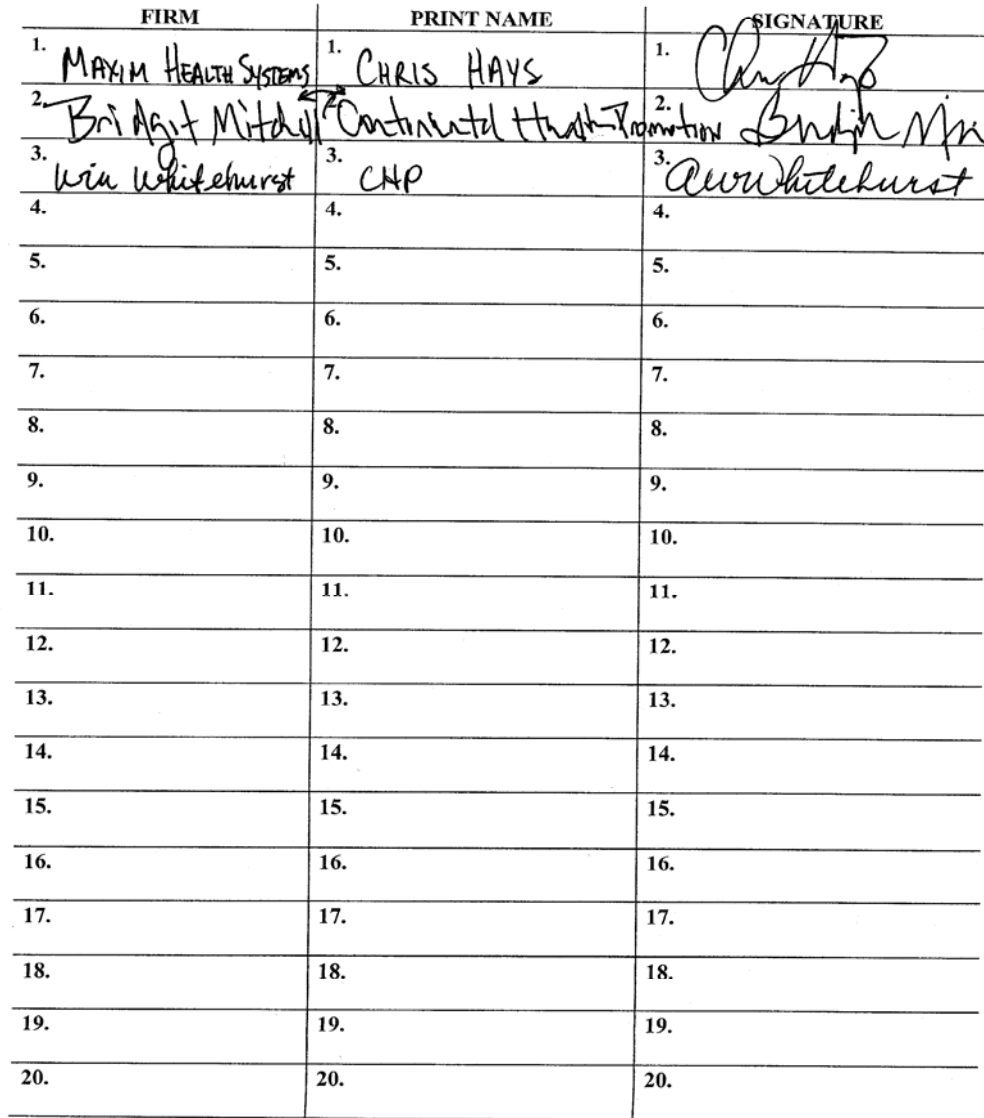 FIRM PRINT NAME SIGNATURE
1. MAXIM HEALTH SYSTEMS 1. CHRIS HAYS 1.
2. Bridgit Mitchell 2. Continental Health Promotion 2.
3. Win Whitehurst 3. CHP 3. Whitehurst
4. 4. 4.
5. 5. 5.
6. 6. 6.
7. 7. 7.
8. 8. 8.
9. 9. 9.
10. 10. 10.
11. 11. 11.
12. 12. 12.
13. 13. 13.
14. 14. 14.
15. 15. 15.
16. 16. 16.
17. 17. 17.
18. 18. 18.
19. 19. 19.
20. 20. 20.